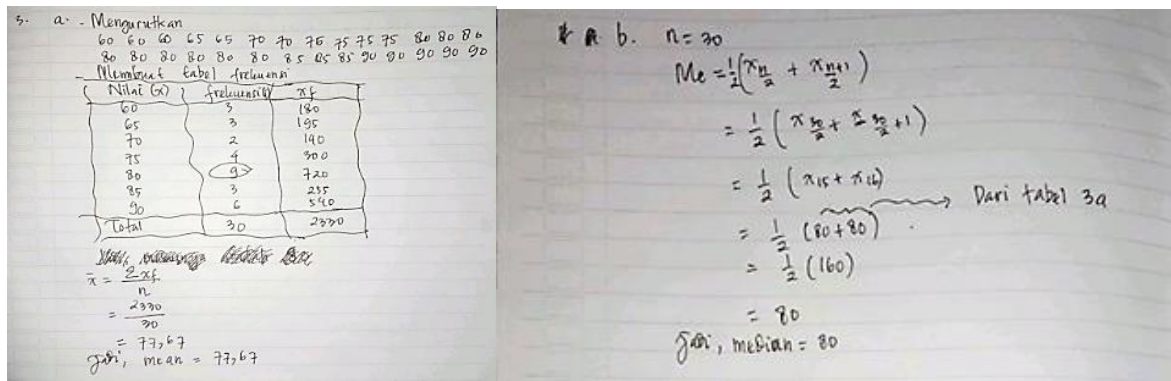 3. a. - Mengurutkan
60 60 60 65 65 70 70 75 75 75 75 80 80 80
80 80 80 80 80 80 85 85 85 90 90 90 90 90 90
- Membuat tabel frekuensi
Nilai (x) frekuensi (f) xf
60 3 180
65 3 195
70 2 140
75 4 300
80 9 720
85 3 255
90 6 540
Total 30 2330
x̄ = Σxf / n
= 2330 / 30
= 77,67
Jadi, mean = 77,67
b. n = 30
Me = 1/2 (x n/2 + x n+1/2)
= 1/2 (x 30/2 + x 30/2 + 1)
= 1/2 (x15 + x16)
= 1/2 (80 + 80) Dari tabel 3a
= 1/2 (160)
= 80
Jadi, median = 80